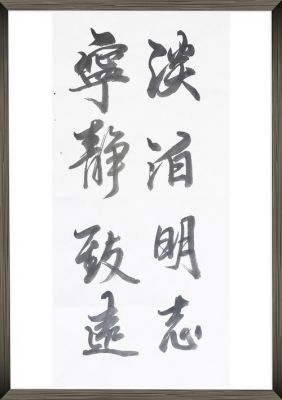 淡泊明志
寧静致遠